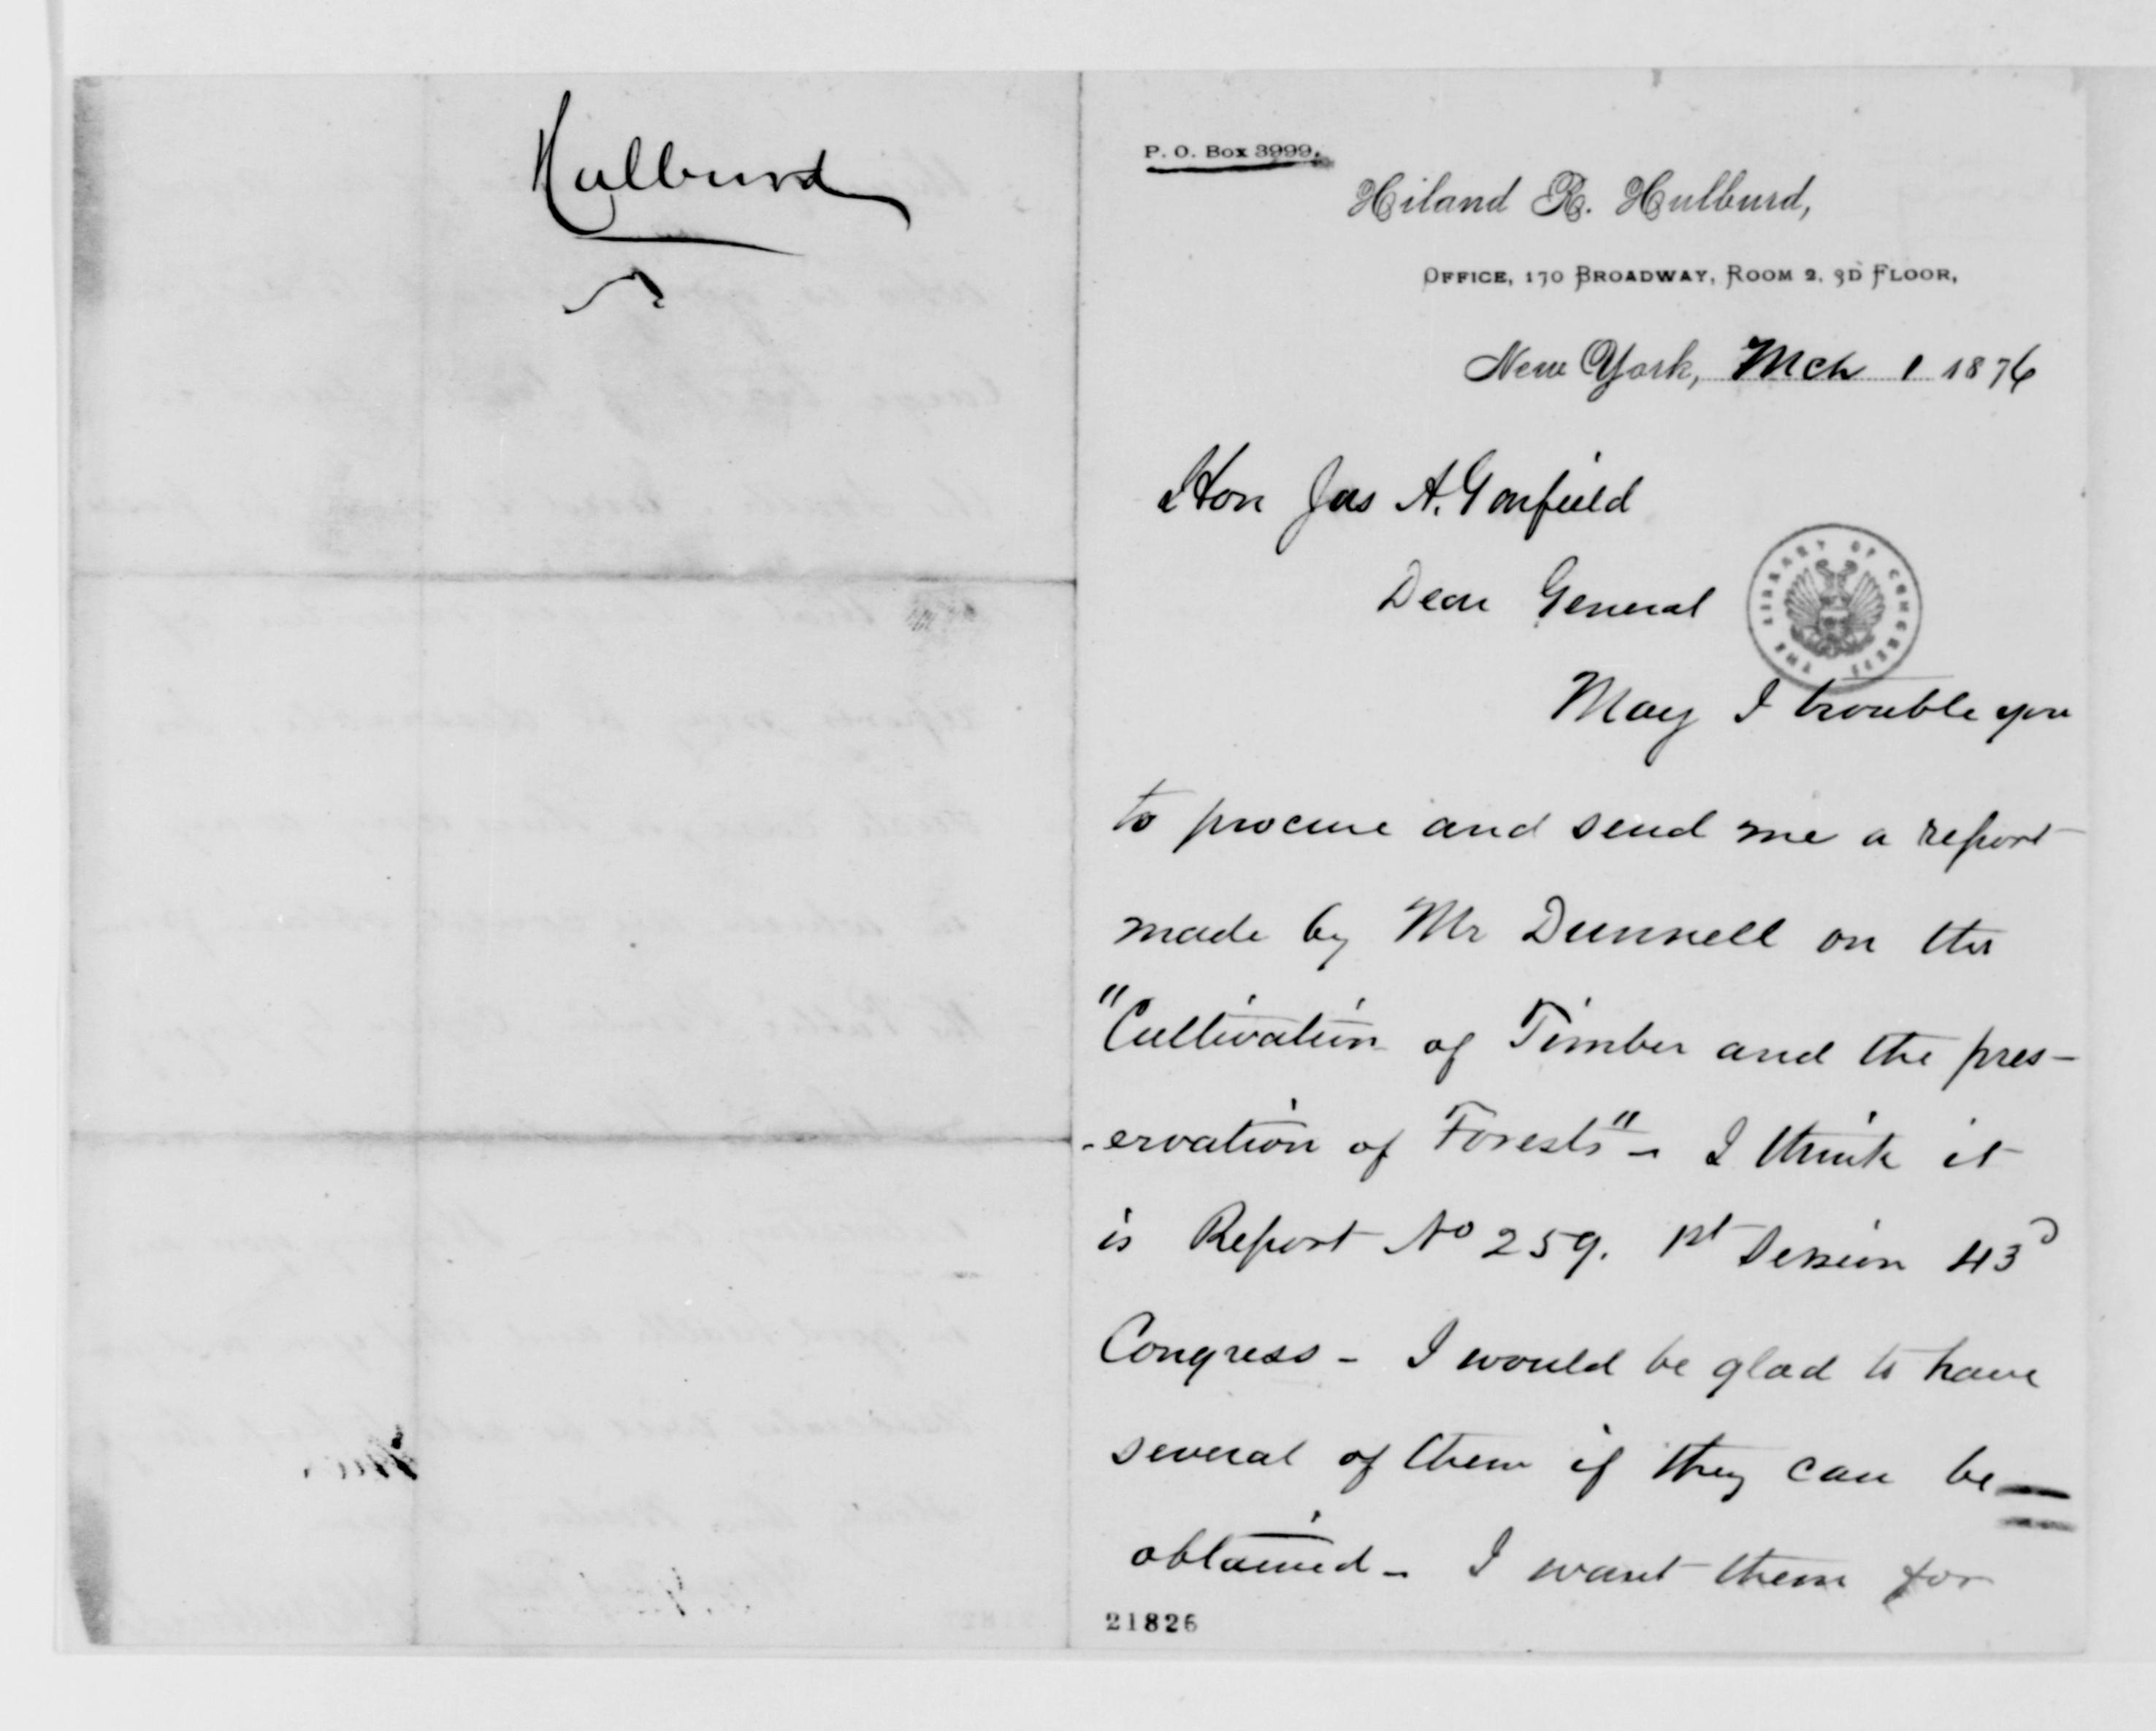 Hulburd
P. O. Box 3999.
Hiland R. Hulburd,
Office, 170 Broadway, Room 2, 3D Floor,
New York, Mch 1 1876
Hon Jas A. Garfield
Dear General
THE LIBRARY OF CONGRESS
May I trouble you
to procure and send me a report
made by Mr Dunnell on the
"Cultivation of Timber and the pres-
-ervation of Forests" - I think it
is Report No 259. 1st Session 43D
Congress - I would be glad to have
several of them if they can be
obtained - I want them for
21826